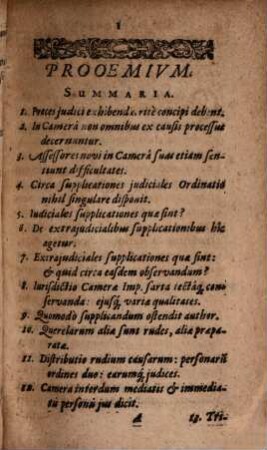 1
PROOEMIVM.
SUMMARIA.
1. Preces judici exhibendæ ritè concipi debent.
2. In Camerâ non omnibus ex causis processus
decernuntur.
3. Assessores novi in Camerâ suas etiam sen-
tiunt difficultates.
4. Circa supplicationes judiciales Ordinatio
nihil singulare disponit.
5. Iudiciales supplicationes quæ sint?
6. De extrajudicialibus supplicationibus hîc
agetur.
7. Extrajudiciales supplicationes quæ sint:
& quid circa easdem observandum?
8. Iurisdictio Cameræ Imp. sarta tectaq́; con-
servanda: ejusq́; varia qualitates.
9. Quomodò supplicandum ostendit author.
10. Querelarum aliæ sunt rudes, aliæ præpa-
ratæ.
11. Distributio rudium causarum: personarũ
ordines duo: earumq́; judices.
12. Camera interdum mediatis & immedia-
tis personis jus dicit.
A
13. Tri-